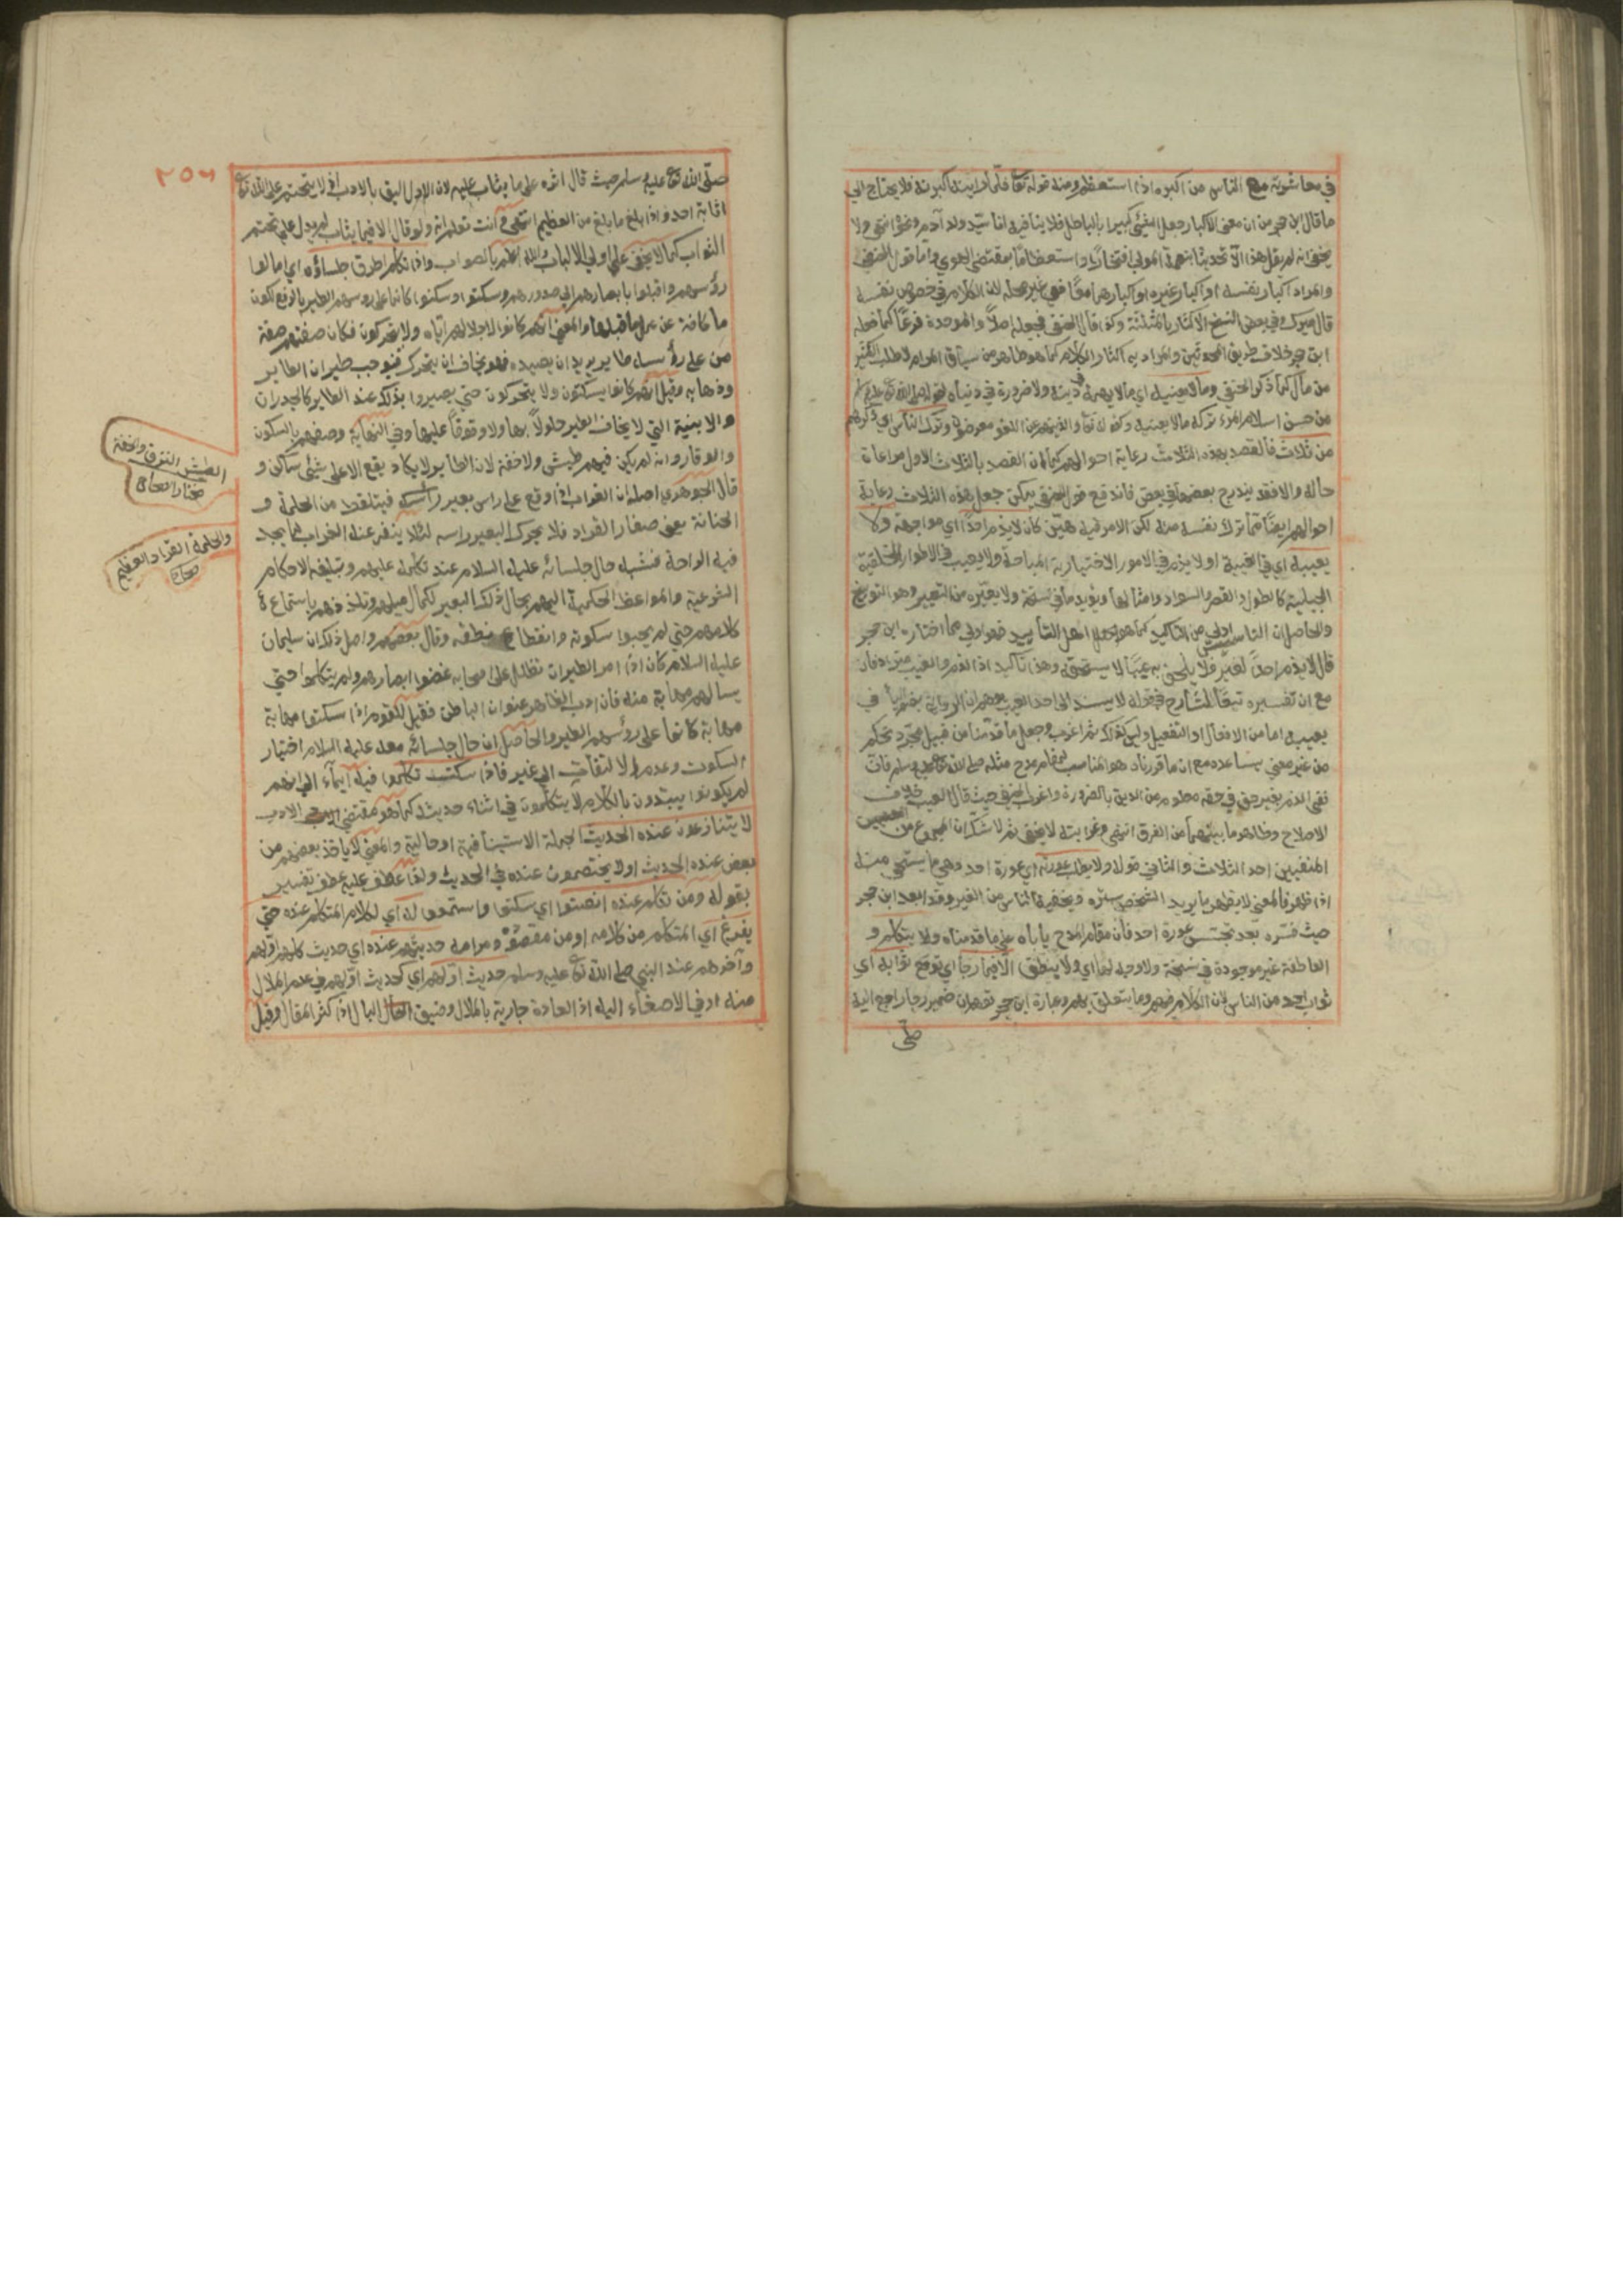 في معاشرته مع الناس من اكبره اذا استعظمه ومنه قوله تعا فلما راينه اكبرنه فلا يحتاج الى
ما قال ابن حجر من ان معنى الاكبار جعل الشيئ كبيرا بالباطل فلا ينافيه انا سيّد ولد آدم ونحوه انتهى ولا
يخفى انه لم يقل هذا الا تحديثا بنعمة المولى لا افتخارا واستعظاما بمقتضى الهوى وأما قول الحنفي
والمراد اكبار نفسه او اكبار غيره او اكبارهما معًا ففي غير محله لان الكلام في خصوص نفسه
قال ميرك وفي بعض النسخ الاكثار بالمثلثة وكذا قال الحنفي فجعله اصلًا والموحدة فرعًا كما فعله
ابن حجر خلاف طريق المحدثين والمراد به اكثار الكلام كما هو ظاهر من سياق المرام لا طلب الكثير
من مال كما ذكره الحنفي وما لا يعنيه اي ما لا يهمه في دينه ولا ضرورة في دنياه لقوله صلى الله تعا عليه وسلم
من حسن اسلام المرء تركه ما لا يعنيه وكقوله تعا والذين هم عن اللغو معرضون وترك الناس اي ذكرهم
من ثلاث فالقصد بهذه الثلاث رعاية احوالهم كما ان القصد بالثلاث الاول مراعاة
حاله والا فقد يندرج بعضها في بعض فاندفع قول الحنفي يمكن جعل هذه الثلاث رعاية
احوالهم ايضًا مما ترك نفسه منه لكن الامر فيه هيّن كان لا يذم احدًا اي مواجهة ولا
يعيبه اي في الغيبة او لا يذم في الامور الاختيارية المباحة ولا يعيب في الاطوار الخلقية
الجبلية كالطول والقصر والسواد وامثالها ويؤيده ما في نسخة ولا يعيّره من التعيير وهو التوبيخ
والحاصل ان التاسيس اولى من التاكيد كما هو اهل التأييد فهو اولى مما اختاره ابن حجر
قال لا يذم احدًا لغير فلا يلحق به عيبًا لا يستحقه وهذا تاكيد اذ الذم والعيب مترادفان
مع ان تفسيره تبعًا لشارح في قوله لا يسند الى احد العيب
يعيب اما من الافعال او التفعيل وليس كذلك ثم اغرب وجعل ما قدمنا من قبيل مجرد تحكم
من غير معنى يساعده مع ان ما قررناه هو المناسب لمقام مدح مثله صلى الله تعا عليه وسلم فان
نفي الذم بغير حق في حقه معلوم من الدين بالضرورة واغرب الحنفي حيث قال العيب خلاف
الاصلاح وظاهر ما بينهما من الفرق انتهى وغرابته لا تخفى ثم لا شك ان المجموع من المعنيين
المنفيين احد الثلاث والثاني قوله ولا يطلب عورته اي عورة احد وهي ما يستحيى منه
اذا ظهر فالمعنى لا يظهر ما يريد الشخص ستره ويخفيه الناس من الغير وقد ابعد ابن حجر
حيث فسّره بعد تجسس عورة احد فان مقام المدح يأباه على ما قدمناه ولا يتكلم و
العاطفة غير موجودة في نسخة ولا وجه لها اي ولا ينطق الا فيما رجا اي توقع ثوابه اي
ثواب احد من الناس لان الكلام فيهم وما يتعلق بهم وعبارة ابن حجر توهم ان ضمير رجا راجع اليه
صلّى
٢٥٦
صلّى الله تعا عليه وسلم حيث قال اثره على ما يثاب عليه لان الاول اليق بالادب اذ لا يتحتم على الله تعا
اثابة احد واذا بلغ ما بلغ من العظيم انتهى وانت تعلم انه ولو قال الا فيما يثاب لم يدل على تحتم
الثواب كما لا يخفى على اولي الالباب والله اعلم بالصواب واذا تكلم اطرق جلساؤه اي امالوا
رؤسهم واقبلوا بابصارهم الى صدورهم وسكتوا وسكنوا كانما على روسهم الطير بالرفع لكون
ما كافة عن عمل ما قبلها والمعنى انهم كانوا لاجلالهم اياه ولا يتحركون فكان صفتهم صفة
من على رؤسه طاير يريد ان يصيده فهو يخاف ان يتحرك فيوجب طيران الطاير
وذهابه وقيل انهم كانوا يسكنون ولا يتحركون حتى يصيروا بذلك عند الطاير كالجدران
والابنية التي لا يخاف الطير حلولًا بها ولا وقوفًا عليها وفي النهاية وصفهم بالسكون
والوقار وانه لم يكن فيهم طيش ولا خفة لان الطاير لا يكاد يقع الا على شيئ ساكن و
قال الجوهري اصله ان الغراب اذا وقع على راس بعير فيتلقط من الحلمة و
الحنانة يعني صغار القراد فلا يحرك البعير راسه لئلا ينفر عنه الغراب لما يجد
فيه الراحة فشبه حال جلسائه عليه السلام عند تكلمه عليهم وتبليغه الاحكام
الشرعية والمواعظ الحكمية اليهم بحال ذلك البعير لكمال ميلهم وتلذذهم باستماع
كلامهم حتى لم يحبوا سكوته وانقطاع نطقه وقال بعضهم واصل ذلك ان سليمان
عليه السلام كان اذا امر الطير ان تظلل على اصحابه غضوا ابصارهم ولم يتكلموا حتى
يسالهم مهابة منه فان ادب الظاهر عنوان الباطن فقيل للقوم اذا سكنوا مهابة
مهابة كانما على رؤسهم الطير والحاصل ان حال جلسائه معه عليه السلام اختيار
السكوت وعدم الالتفات الى غير فاذا سكت تكلموا فيه ايماء الى انهم
لم يكونوا يبتدون بالكلام ولا يتكلمون في اثناء حديثه كما هو مقتضى الادب
لا يتنازعون عنده الحديث الجملة الاستينافية او حالية والمعنى لا ياخذ بعضهم من
بعض عنده الحديث او لا يختصمون عنده في الحديث ولذا عطف عليه عطف تفسير
بقوله ومن تكلم عنده انصتوا اي سكتوا واستمعوا له اي لكلام المتكلم عنده حتى
يفرغ اي المتكلم من كلامه او من مقصده ومرامه حديثهم عنده اي حديث كلهم اولهم
وآخرهم عند النبي صلى الله تعا عليه وسلم حديث اولهم اي كحديث اولهم في عدم الملال
منه او في الاصغاء اليه اذ العادة جارية بالملال وضيق البال اذا كثر المقال وقيل
الطيش النزق والخفة
مختار الصحاح
والحلمة القراد العظيم
صحاح